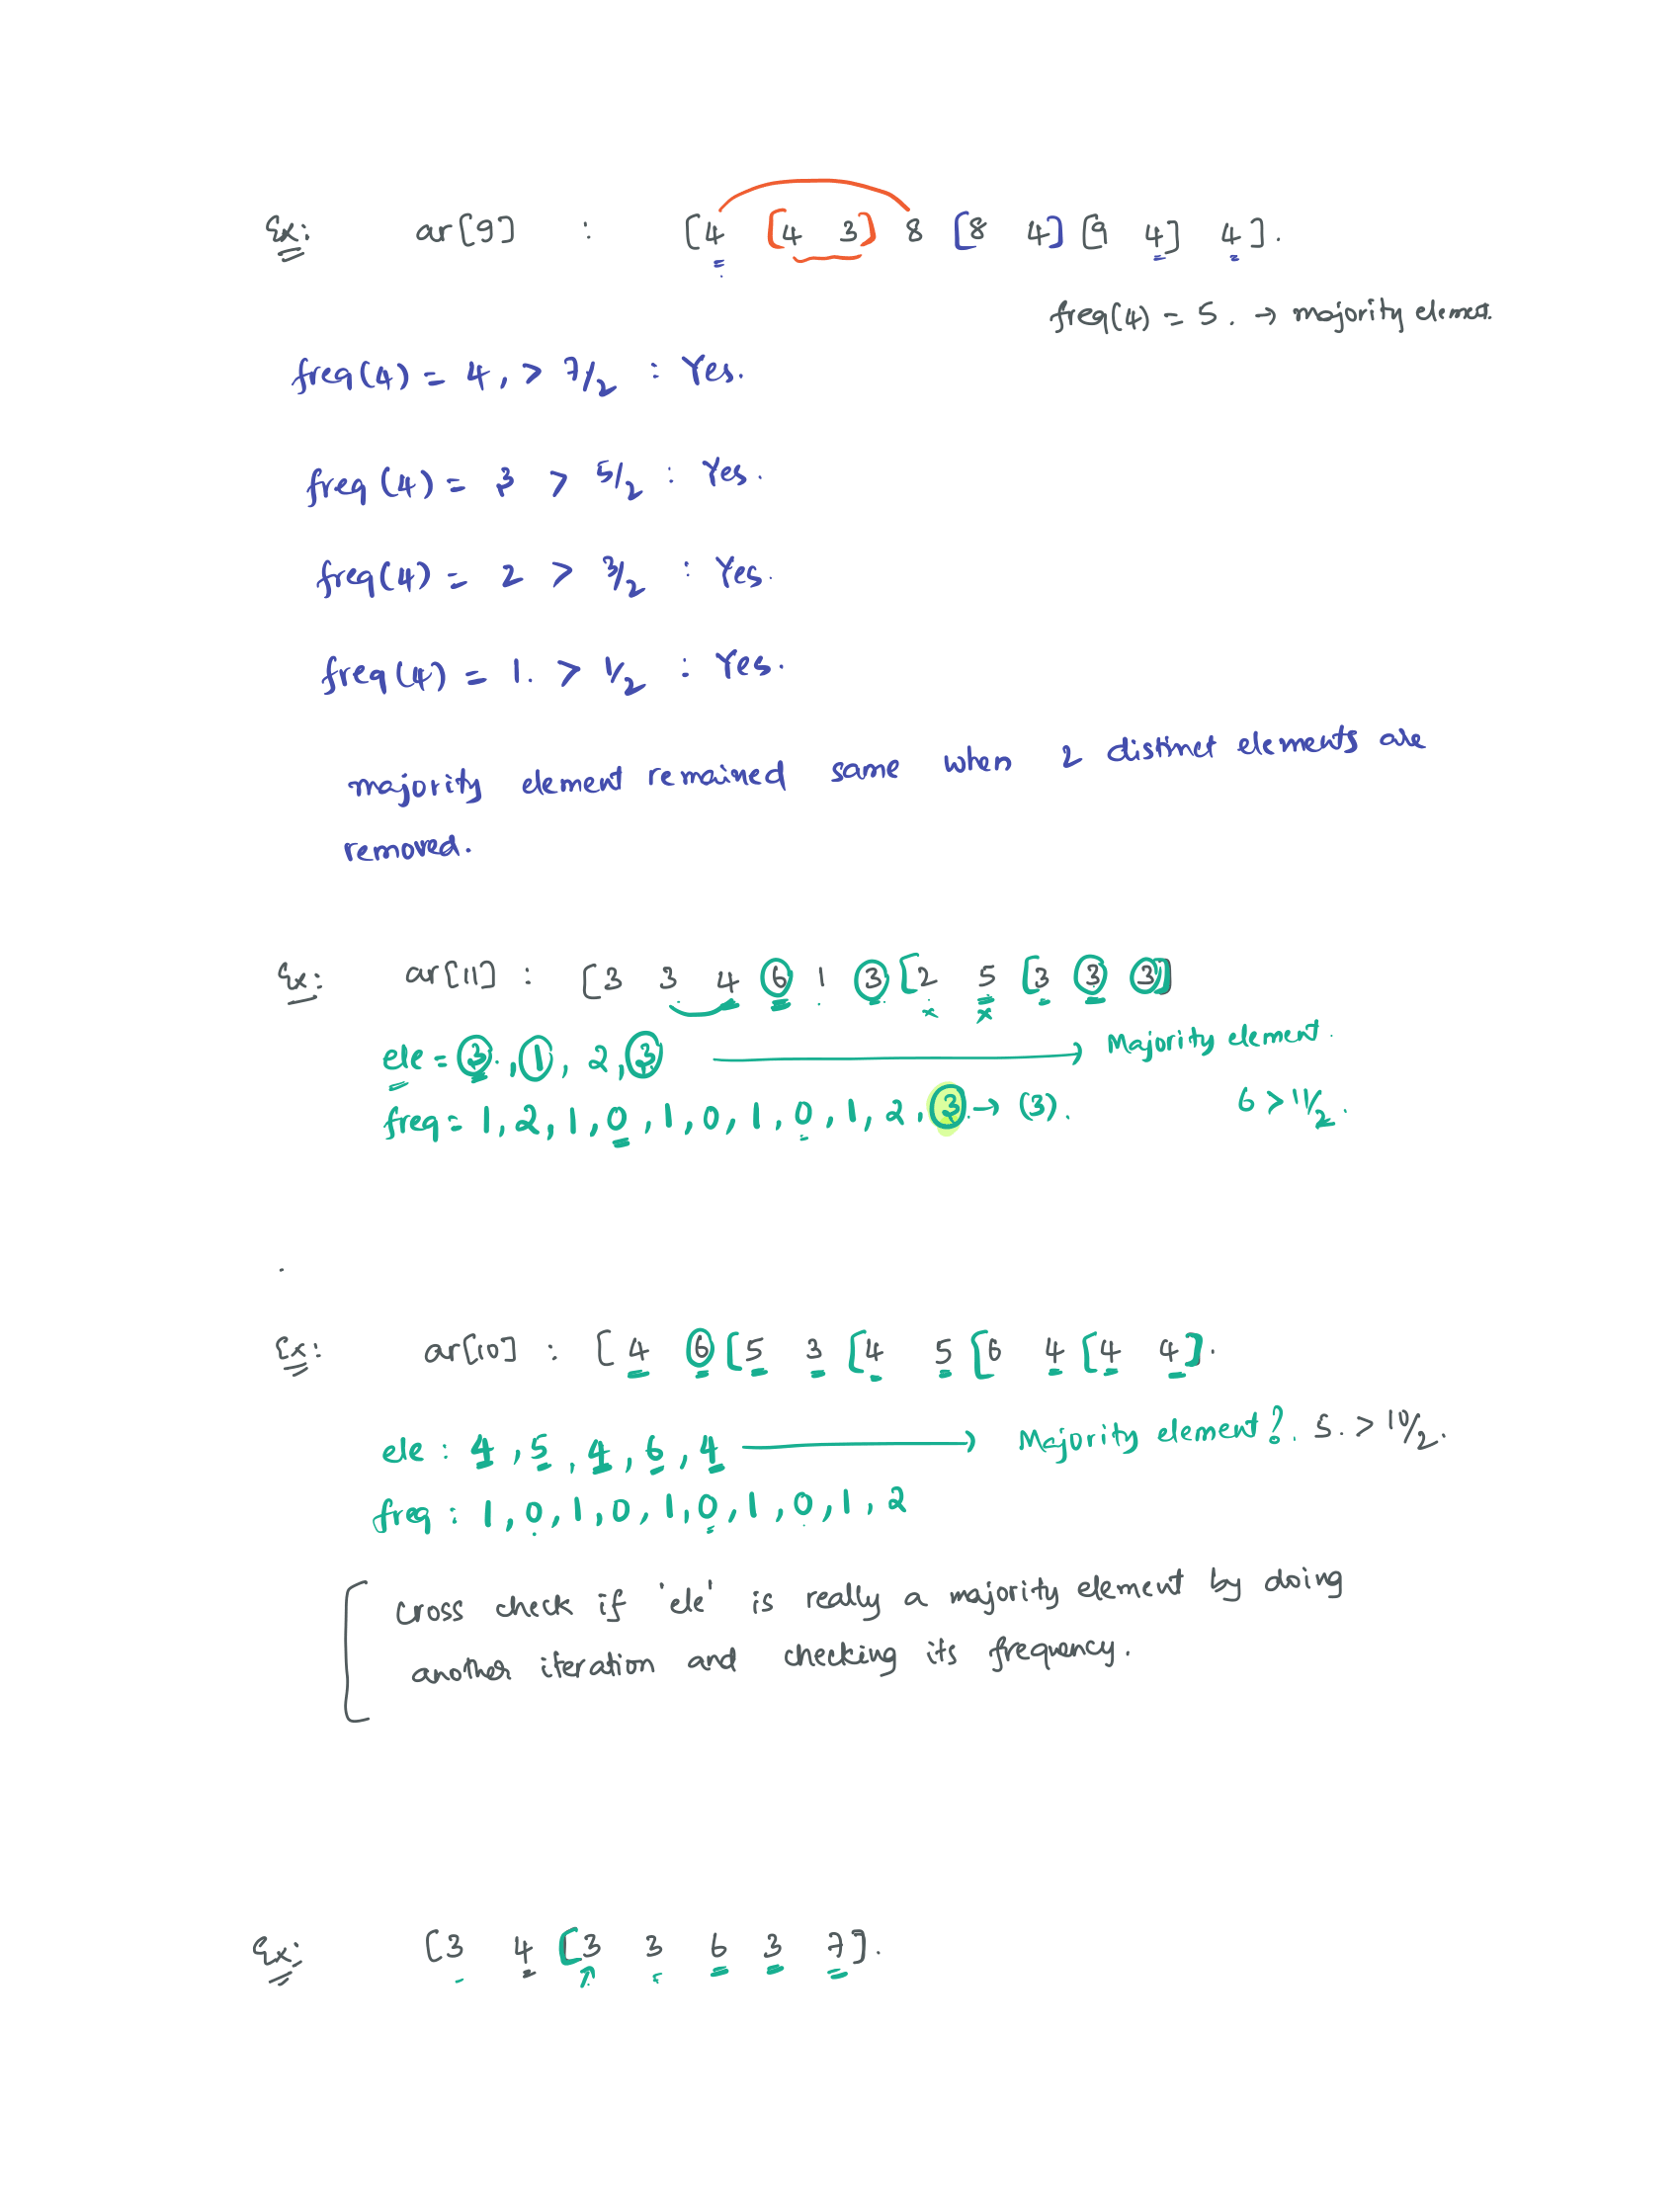 Ex: ar[9] : [4 [4 3] 8 [8 4] [9 4] 4].
freq(4) = 5. → majority element.
freq(4) = 4, > 7/2 : Yes.
freq(4) = 3 > 5/2 : Yes.
freq(4) = 2 > 3/2 : Yes.
freq(4) = 1. > 1/2 : Yes.
majority element remained same when 2 distinct elements are
removed.
Ex: ar[11] : [3 3 4 6 1 3 [2 5 [3 3 3]
x x
ele = 3, 1, 2, 3 → Majority element.
freq = 1, 2, 1, 0, 1, 0, 1, 0, 1, 2, 3 → (3). 6 > 11/2.
Ex: ar[10] : [4 6 [5 3 [4 5 [6 4 [4 4].
ele : 4, 5, 4, 6, 4 → Majority element?. 5. > 10/2.
freq : 1, 0, 1, 0, 1, 0, 1, 0, 1, 2
Cross check if 'ele' is really a majority element by doing
another iteration and checking its frequency.
Ex: [3 4 [3 3 6 3 7].